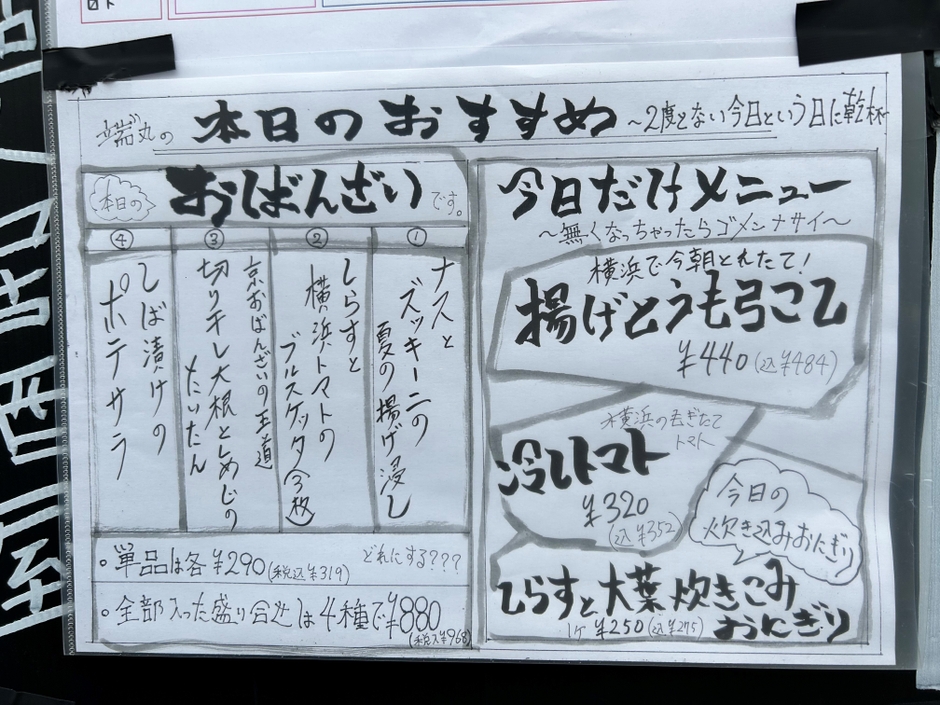 端丸の 本日のおすすめ ～2度とない今日という日に乾杯
本日の おばんざい です。
①
ナスと
ズッキーニの
夏の揚げ浸し
②
しらすと
横浜トマトの
ブルスケッタ(2枚)
③
京おばんざいの王道
切り干し大根としめじの
たいたん
④
しば漬けの
ポテサラ
・単品は各¥290(税込¥319) どれにする???
・全部入った盛り合せは4種で¥880
(税込¥968)
今日だけメニュー
～無くなっちゃったらゴメンナサイ～
横浜で今朝とれたて!
揚げとうもろこし
¥440(込¥484)
横浜のもぎたて
トマト
冷しトマト
¥320
(込¥352)
今日の
炊き込みおにぎり
しらすと大葉炊きこみ
おにぎり
1ケ ¥250(込¥275)
酒
屋